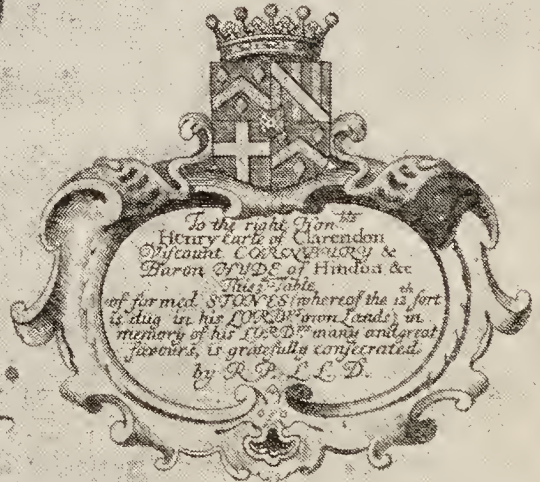 To the right Hon.ble
Henry Earle of Clarendon
Viscount CORNBURY &
Baron HYDE of Hindon &c
This Table
of formed STONES (whereof the 12th sort
is dug in his LORDPs own Lands) in
memory of his LORDPs many and great
favours, is gratefully consecrated
by R. P. L L D.